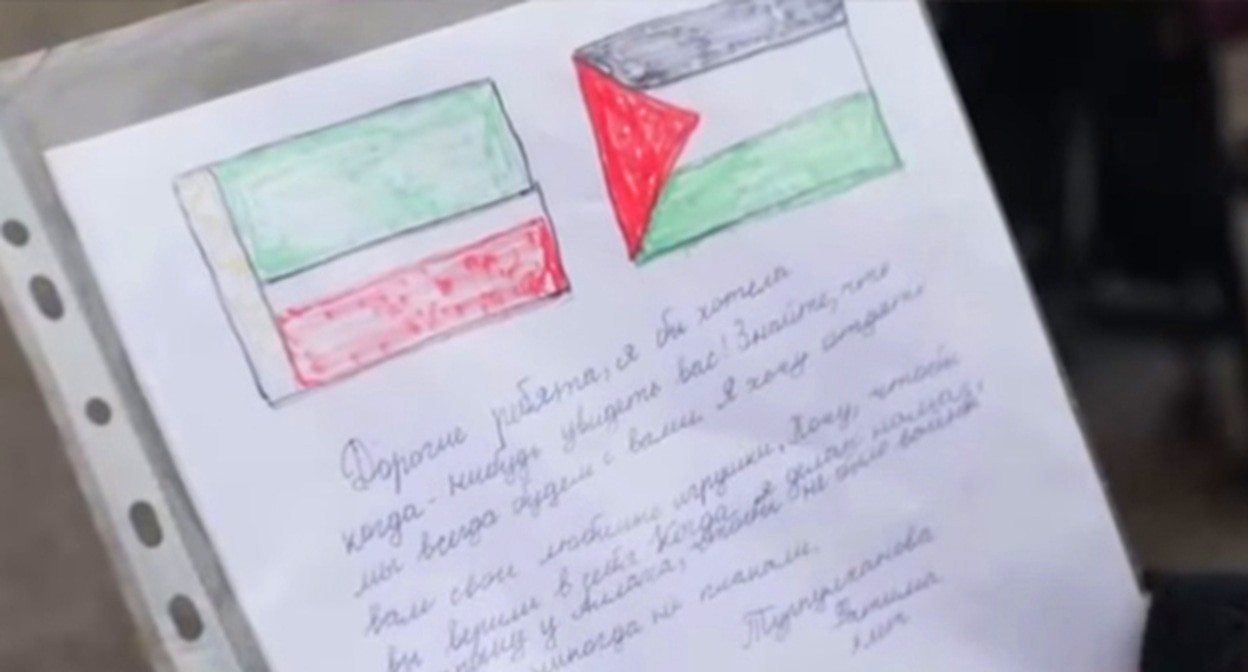 Дорогие ребята, я бы хотела
когда-нибудь увидеть вас! Знайте, что
мы всегда будем с вами. Я хочу отдать
вам свои любимые игрушки. Хочу, чтобы
вы верили в себя. Когда я делаю намаз,
прошу у Аллаха, чтобы не было войны
никогда не плакали.
Турпулханова
Фатима
лет